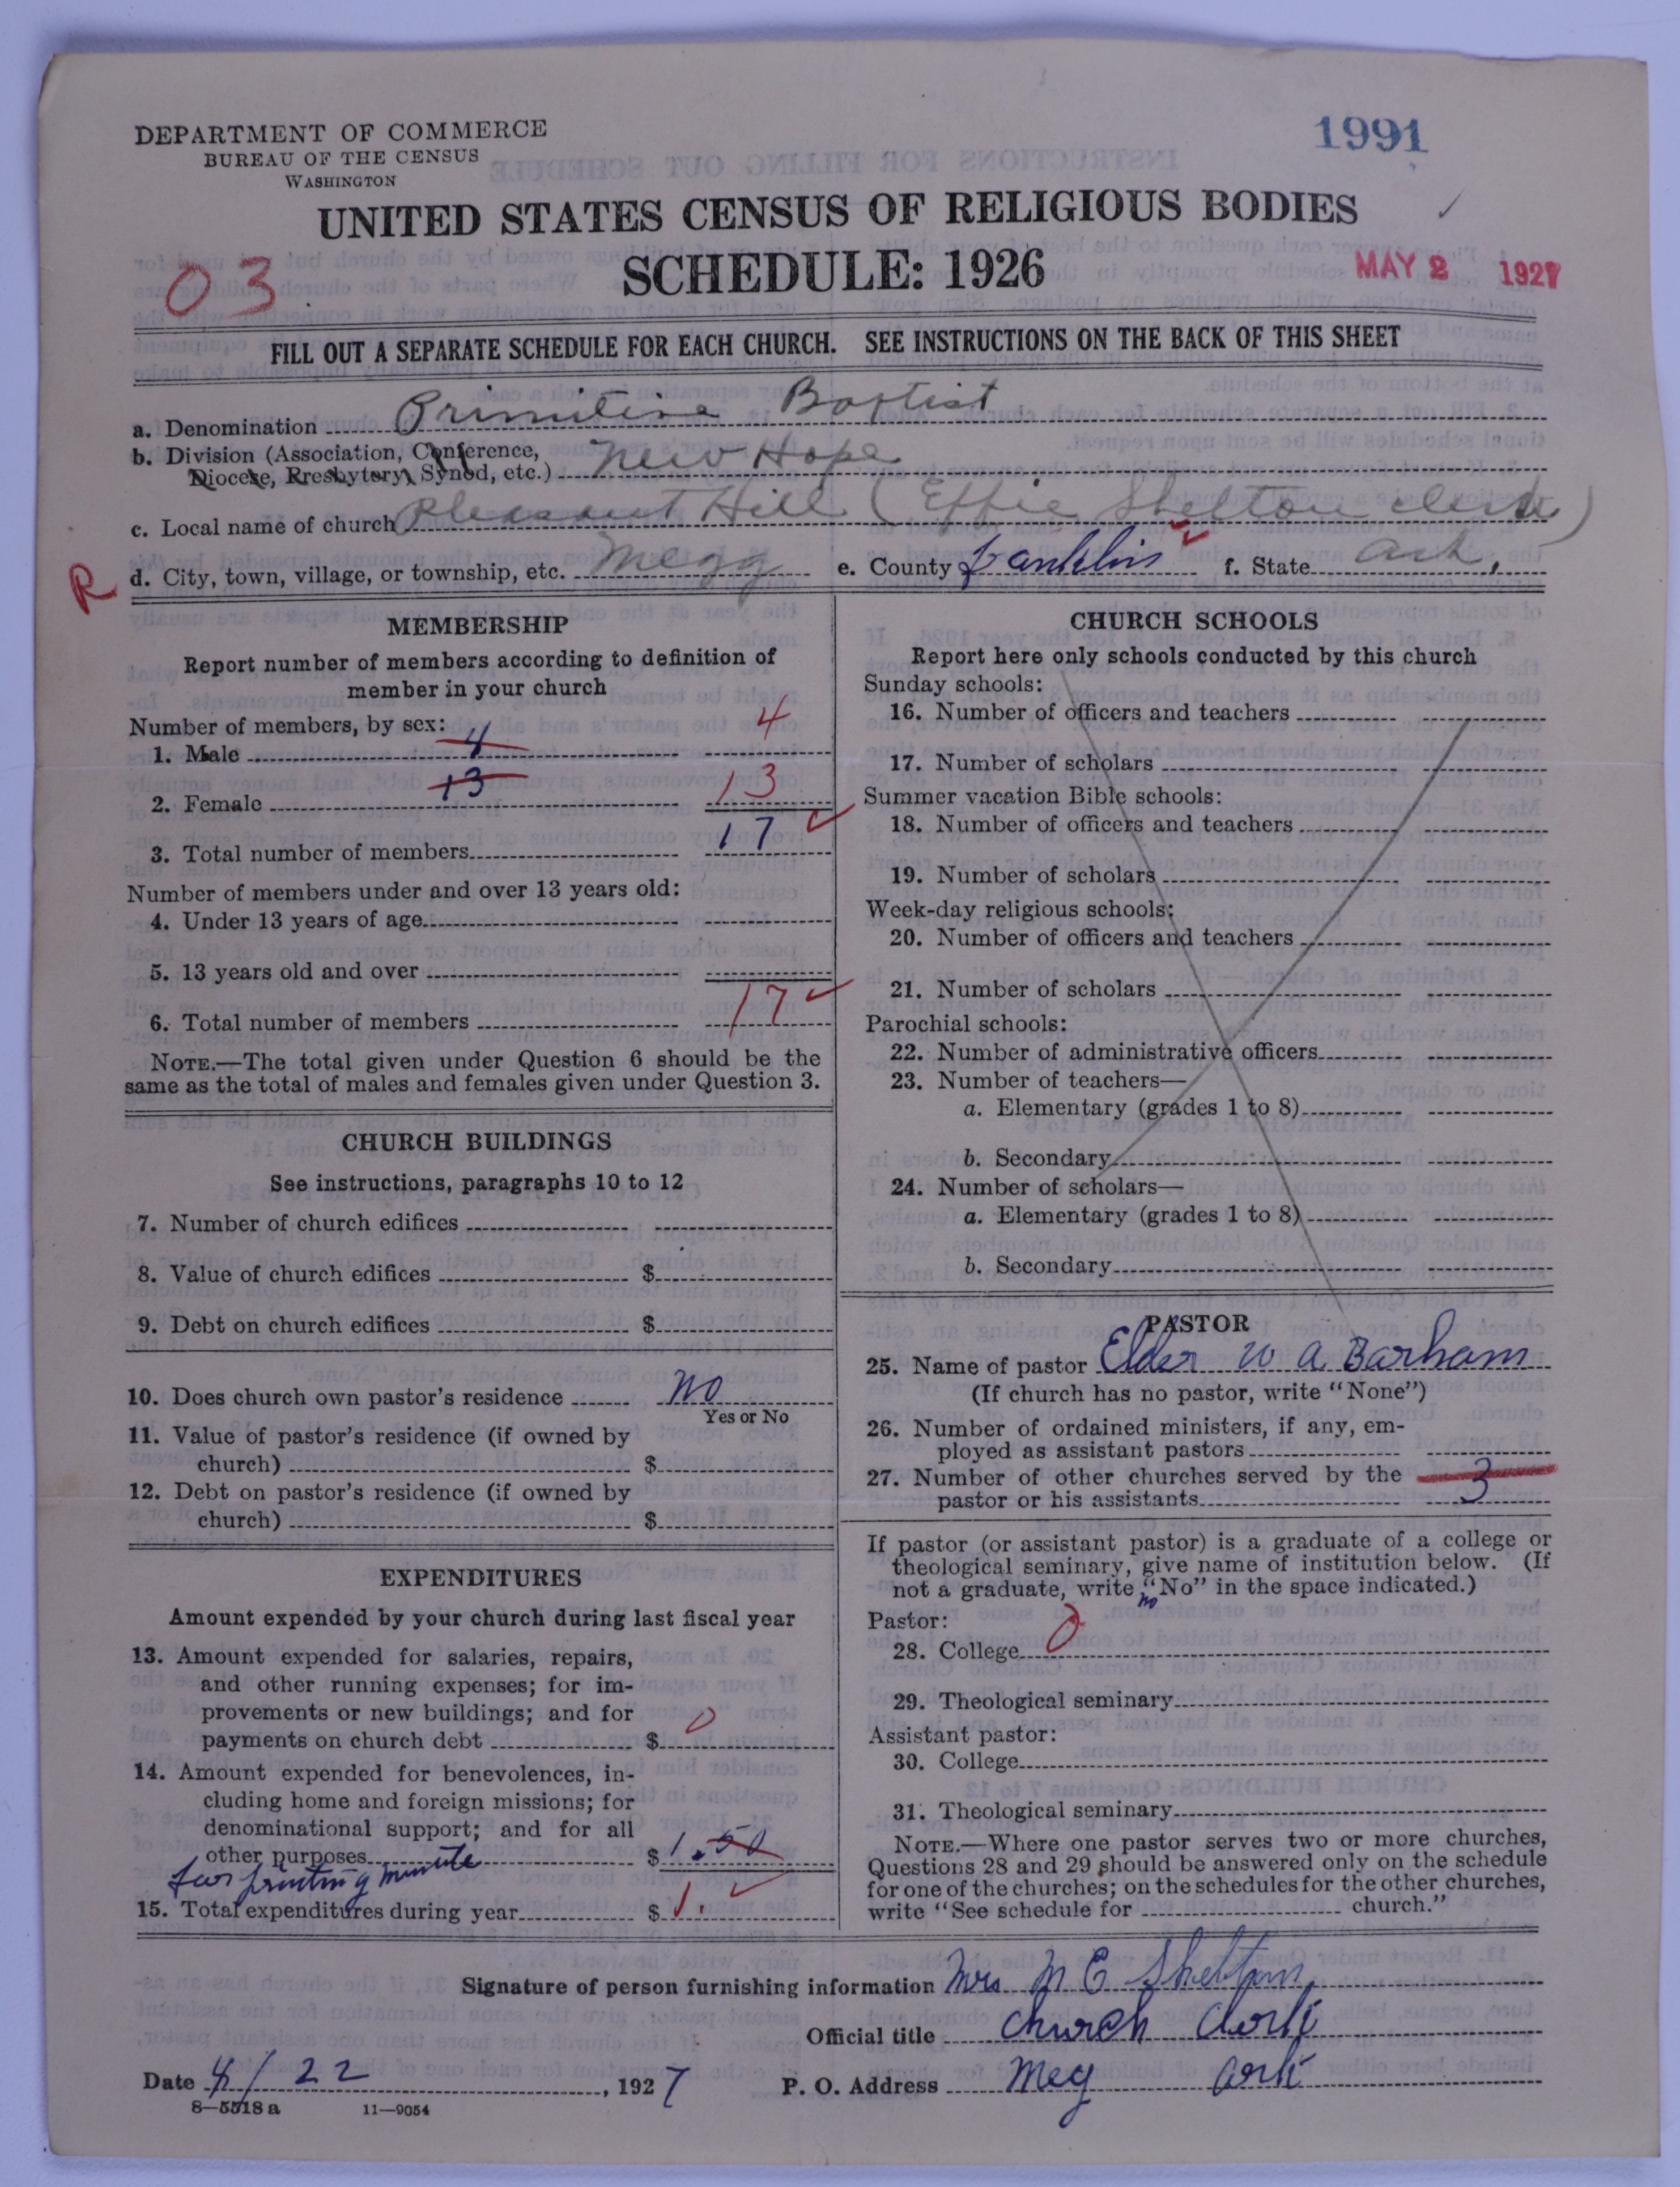 DEPARTMENT OF COMMERCE
BUREAU OF THE CENSUS
WASHINGTON
1991
UNITED STATES CENSUS OF RELIGIOUS BODIES
SCHEDULE: 1926
03
MAY 2 1927
FILL OUT A SEPARATE SCHEDULE FOR EACH CHURCH. SEE INSTRUCTIONS ON THE BACK OF THIS SHEET
a. Denomination Primitive Baptist
b. Division (Association, Conference, Diocese, Presbytery, Synod, etc.) New Hope
c. Local name of church Pleasant Hill (Effie Shelton clerk)
R
d. City, town, village, or township, etc. Megg e. County Franklin f. State Ark.
MEMBERSHIP
Report number of members according to definition of
member in your church
Number of members, by sex:
1. Male 4 4
2. Female 13 13
3. Total number of members 17
Number of members under and over 13 years old:
4. Under 13 years of age
5. 13 years old and over
6. Total number of members 17
NOTE.—The total given under Question 6 should be the
same as the total of males and females given under Question 3.
CHURCH BUILDINGS
See instructions, paragraphs 10 to 12
7. Number of church edifices
8. Value of church edifices $
9. Debt on church edifices $
10. Does church own pastor's residence No
Yes or No
11. Value of pastor's residence (if owned by
church) $
12. Debt on pastor's residence (if owned by
church) $
EXPENDITURES
Amount expended by your church during last fiscal year
13. Amount expended for salaries, repairs,
and other running expenses; for im-
provements or new buildings; and for
payments on church debt $ 0
14. Amount expended for benevolences, in-
cluding home and foreign missions; for
denominational support; and for all
other purposes $ 1.50
for printing minute
15. Total expenditures during year $ 1.
CHURCH SCHOOLS
Report here only schools conducted by this church
Sunday schools:
16. Number of officers and teachers
17. Number of scholars
Summer vacation Bible schools:
18. Number of officers and teachers
19. Number of scholars
Week-day religious schools:
20. Number of officers and teachers
21. Number of scholars
Parochial schools:
22. Number of administrative officers
23. Number of teachers—
a. Elementary (grades 1 to 8)
b. Secondary
24. Number of scholars—
a. Elementary (grades 1 to 8)
b. Secondary
PASTOR
25. Name of pastor Elder W A Barham
(If church has no pastor, write "None")
26. Number of ordained ministers, if any, em-
ployed as assistant pastors
27. Number of other churches served by the
pastor or his assistants 3
If pastor (or assistant pastor) is a graduate of a college or
theological seminary, give name of institution below. (If
not a graduate, write "No" in the space indicated.)
no
Pastor:
28. College 0
29. Theological seminary
Assistant pastor:
30. College
31. Theological seminary
NOTE.—Where one pastor serves two or more churches,
Questions 28 and 29 should be answered only on the schedule
for one of the churches; on the schedules for the other churches,
write "See schedule for church."
Signature of person furnishing information Mrs M E Shelton
Official title Church Clerk
Date 4/22, 1927 P. O. Address Meg Ark
8—5518 a 11—9054